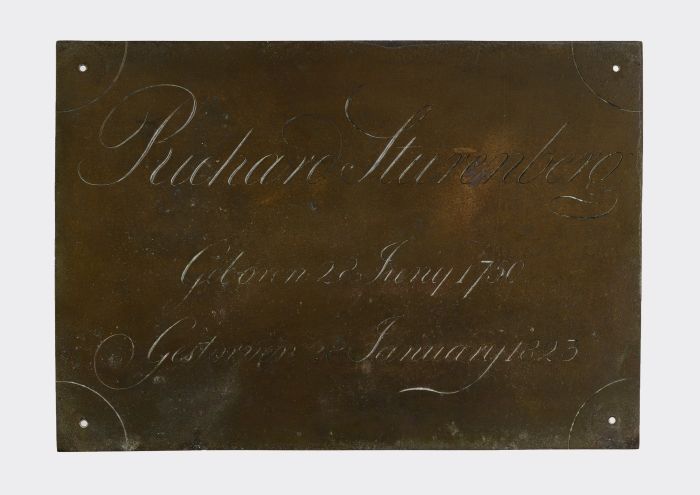 Richard Sturenberg
Geboren 28 Juny 1730
Gestorven January 1823